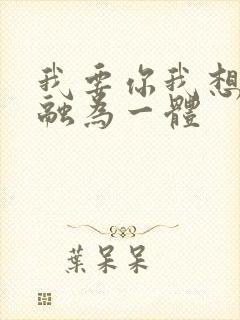 我要你我想
融為一體
葉呆呆